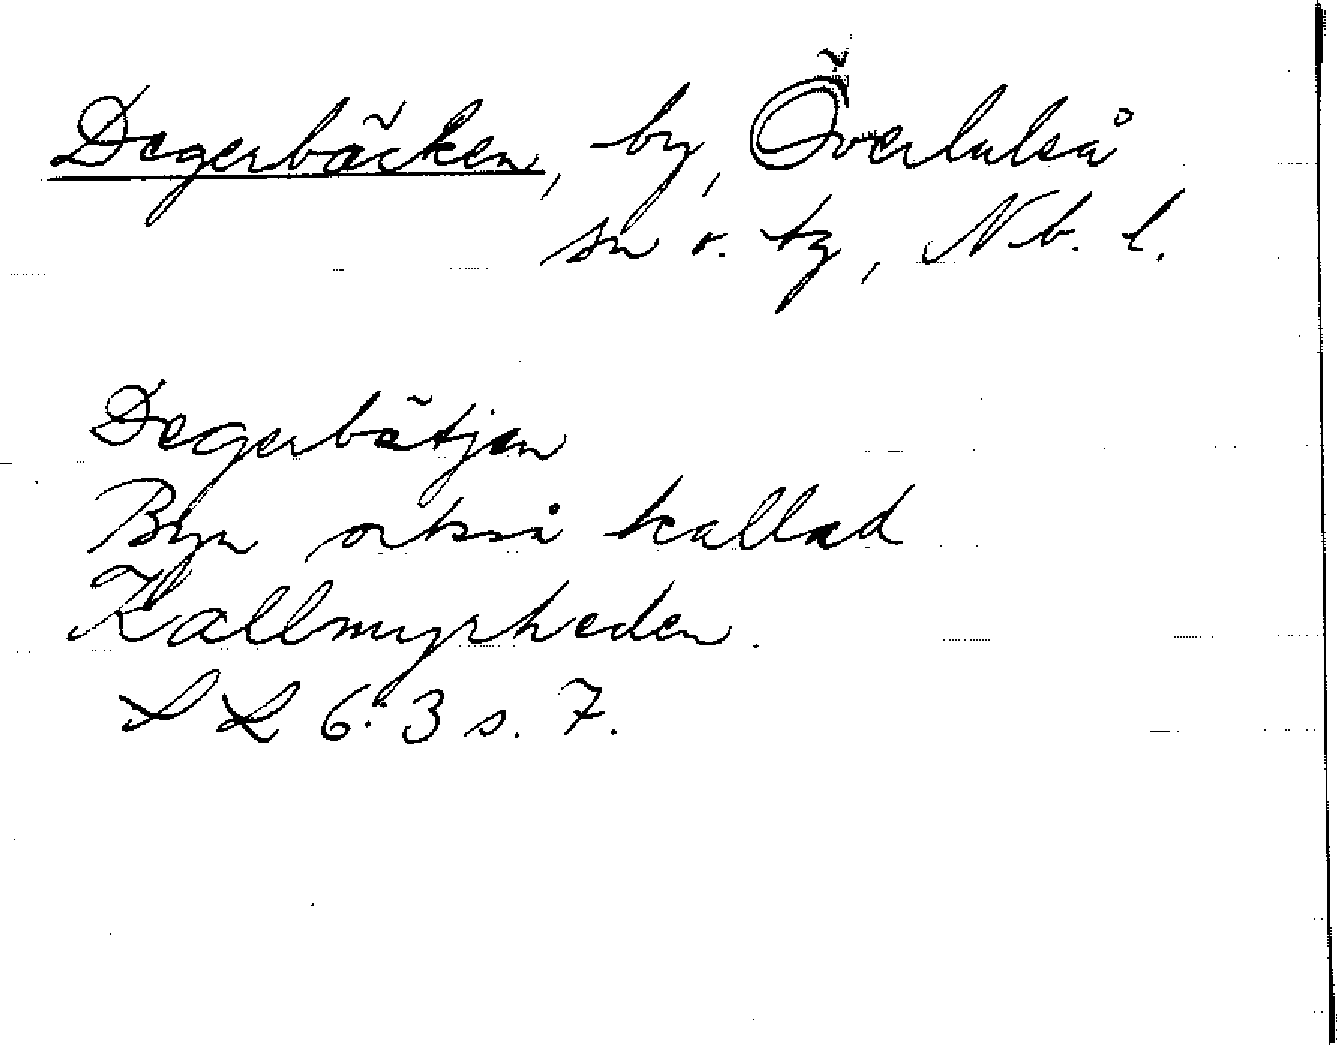 Degerbäcken, by, Överluleå
sn o. tg, Nb. l.
Degerbätjen
Byn också kallad
Kallmyrheden.
LL 6:3 s. 7.